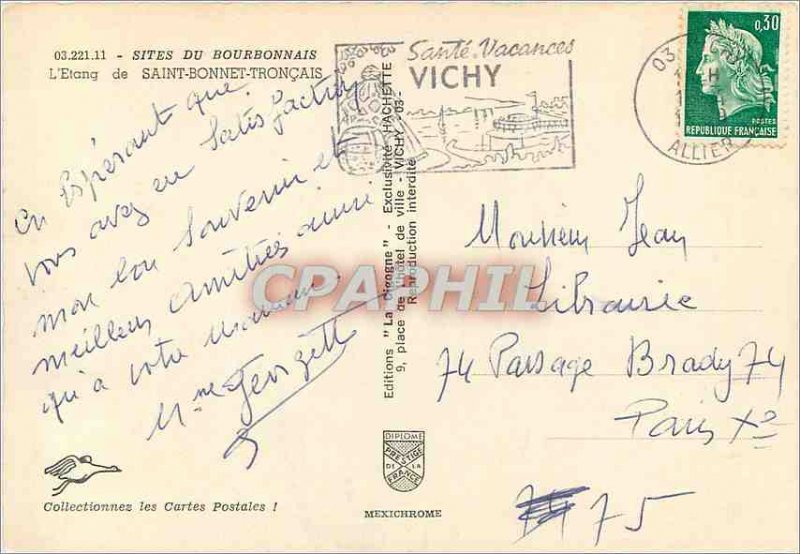 03.221.11 - SITES DU BOURBONNAIS
L'Etang de SAINT-BONNET-TRONÇAIS
En Espérant que
vous avez eu satisfaction
mon bon souvenir et
meilleures amitiés ainsi
qu'à votre maman
Mme Georgett
Collectionnez les Cartes Postales !
Editions "La Cigogne" - Exclusivité HACHETTE
9, place de l'hôtel de ville - VICHY -03-
Reproduction interdite
DIPLOME
PRESTIGE
DE LA
FRANCE
MEXICHROME
Santé.Vacances
VICHY
03
ALLIER
0,30
POSTES
REPUBLIQUE FRANÇAISE
Monsieur Jean
Librairie
74 Passage Brady 74
Paris Xe
75
CPAPHIL